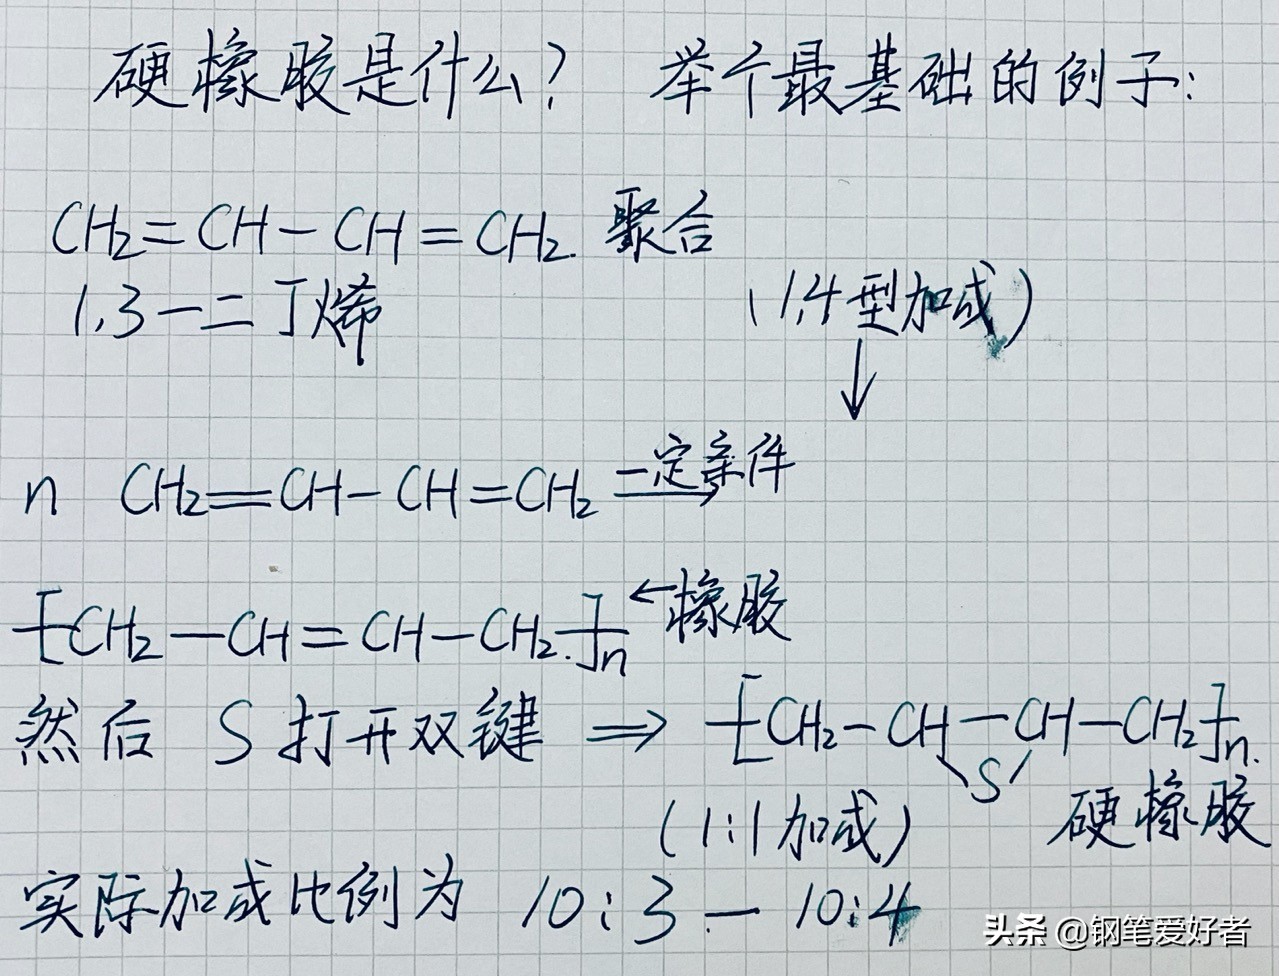 硬橡胶是什么? 举个最基础的例子:
CH₂=CH-CH=CH₂. 聚合
1,3-二丁烯
(1,4型加成)
↓
n CH₂=CH-CH=CH₂ 一定条件→
[CH₂-CH=CH-CH₂.]n ←橡胶
然后 S打开双键 ⇒ [CH₂-CH-CH-CH₂]n.
S
(1:1加成) 硬橡胶
实际加成比例为 10:3-10:4
头条 @钢笔爱好者